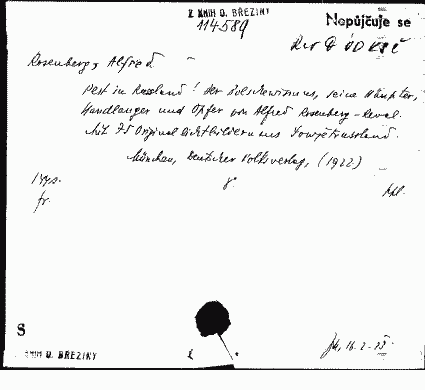 Z KNIH O. BŘEZINY
114589
Nepůjčuje se
Rosenberg, Alfred
Pest in Russland! Der Bolschewismus, seine Häupter,
Handlanger und Opfer von Alfred Rosenberg-Reval.
Mit 75 Original Lichtbildern aus Sowjetrussland.
München, Deutscher Volksverlag, (1922)
8°
fr.
S
KNIH O. BŘEZINY